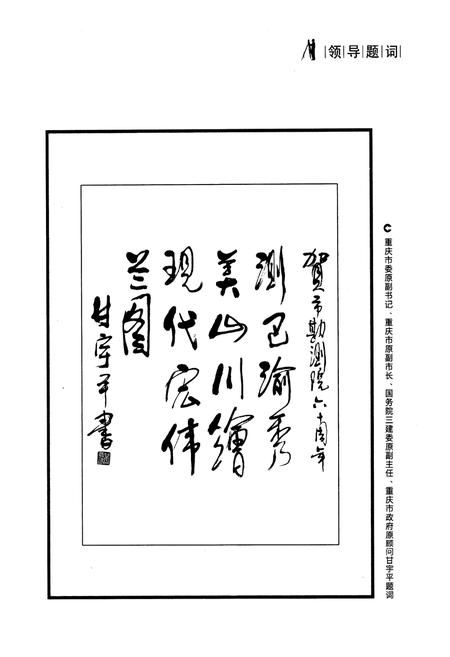 领导题词
贺市勘测院六十周年
测巴渝秀
美山川绘
现代宏伟
兰图
甘宇平书
重庆市委原副书记、重庆市原副市长、国务院三建委原副主任、重庆市政府原顾问甘宇平题词